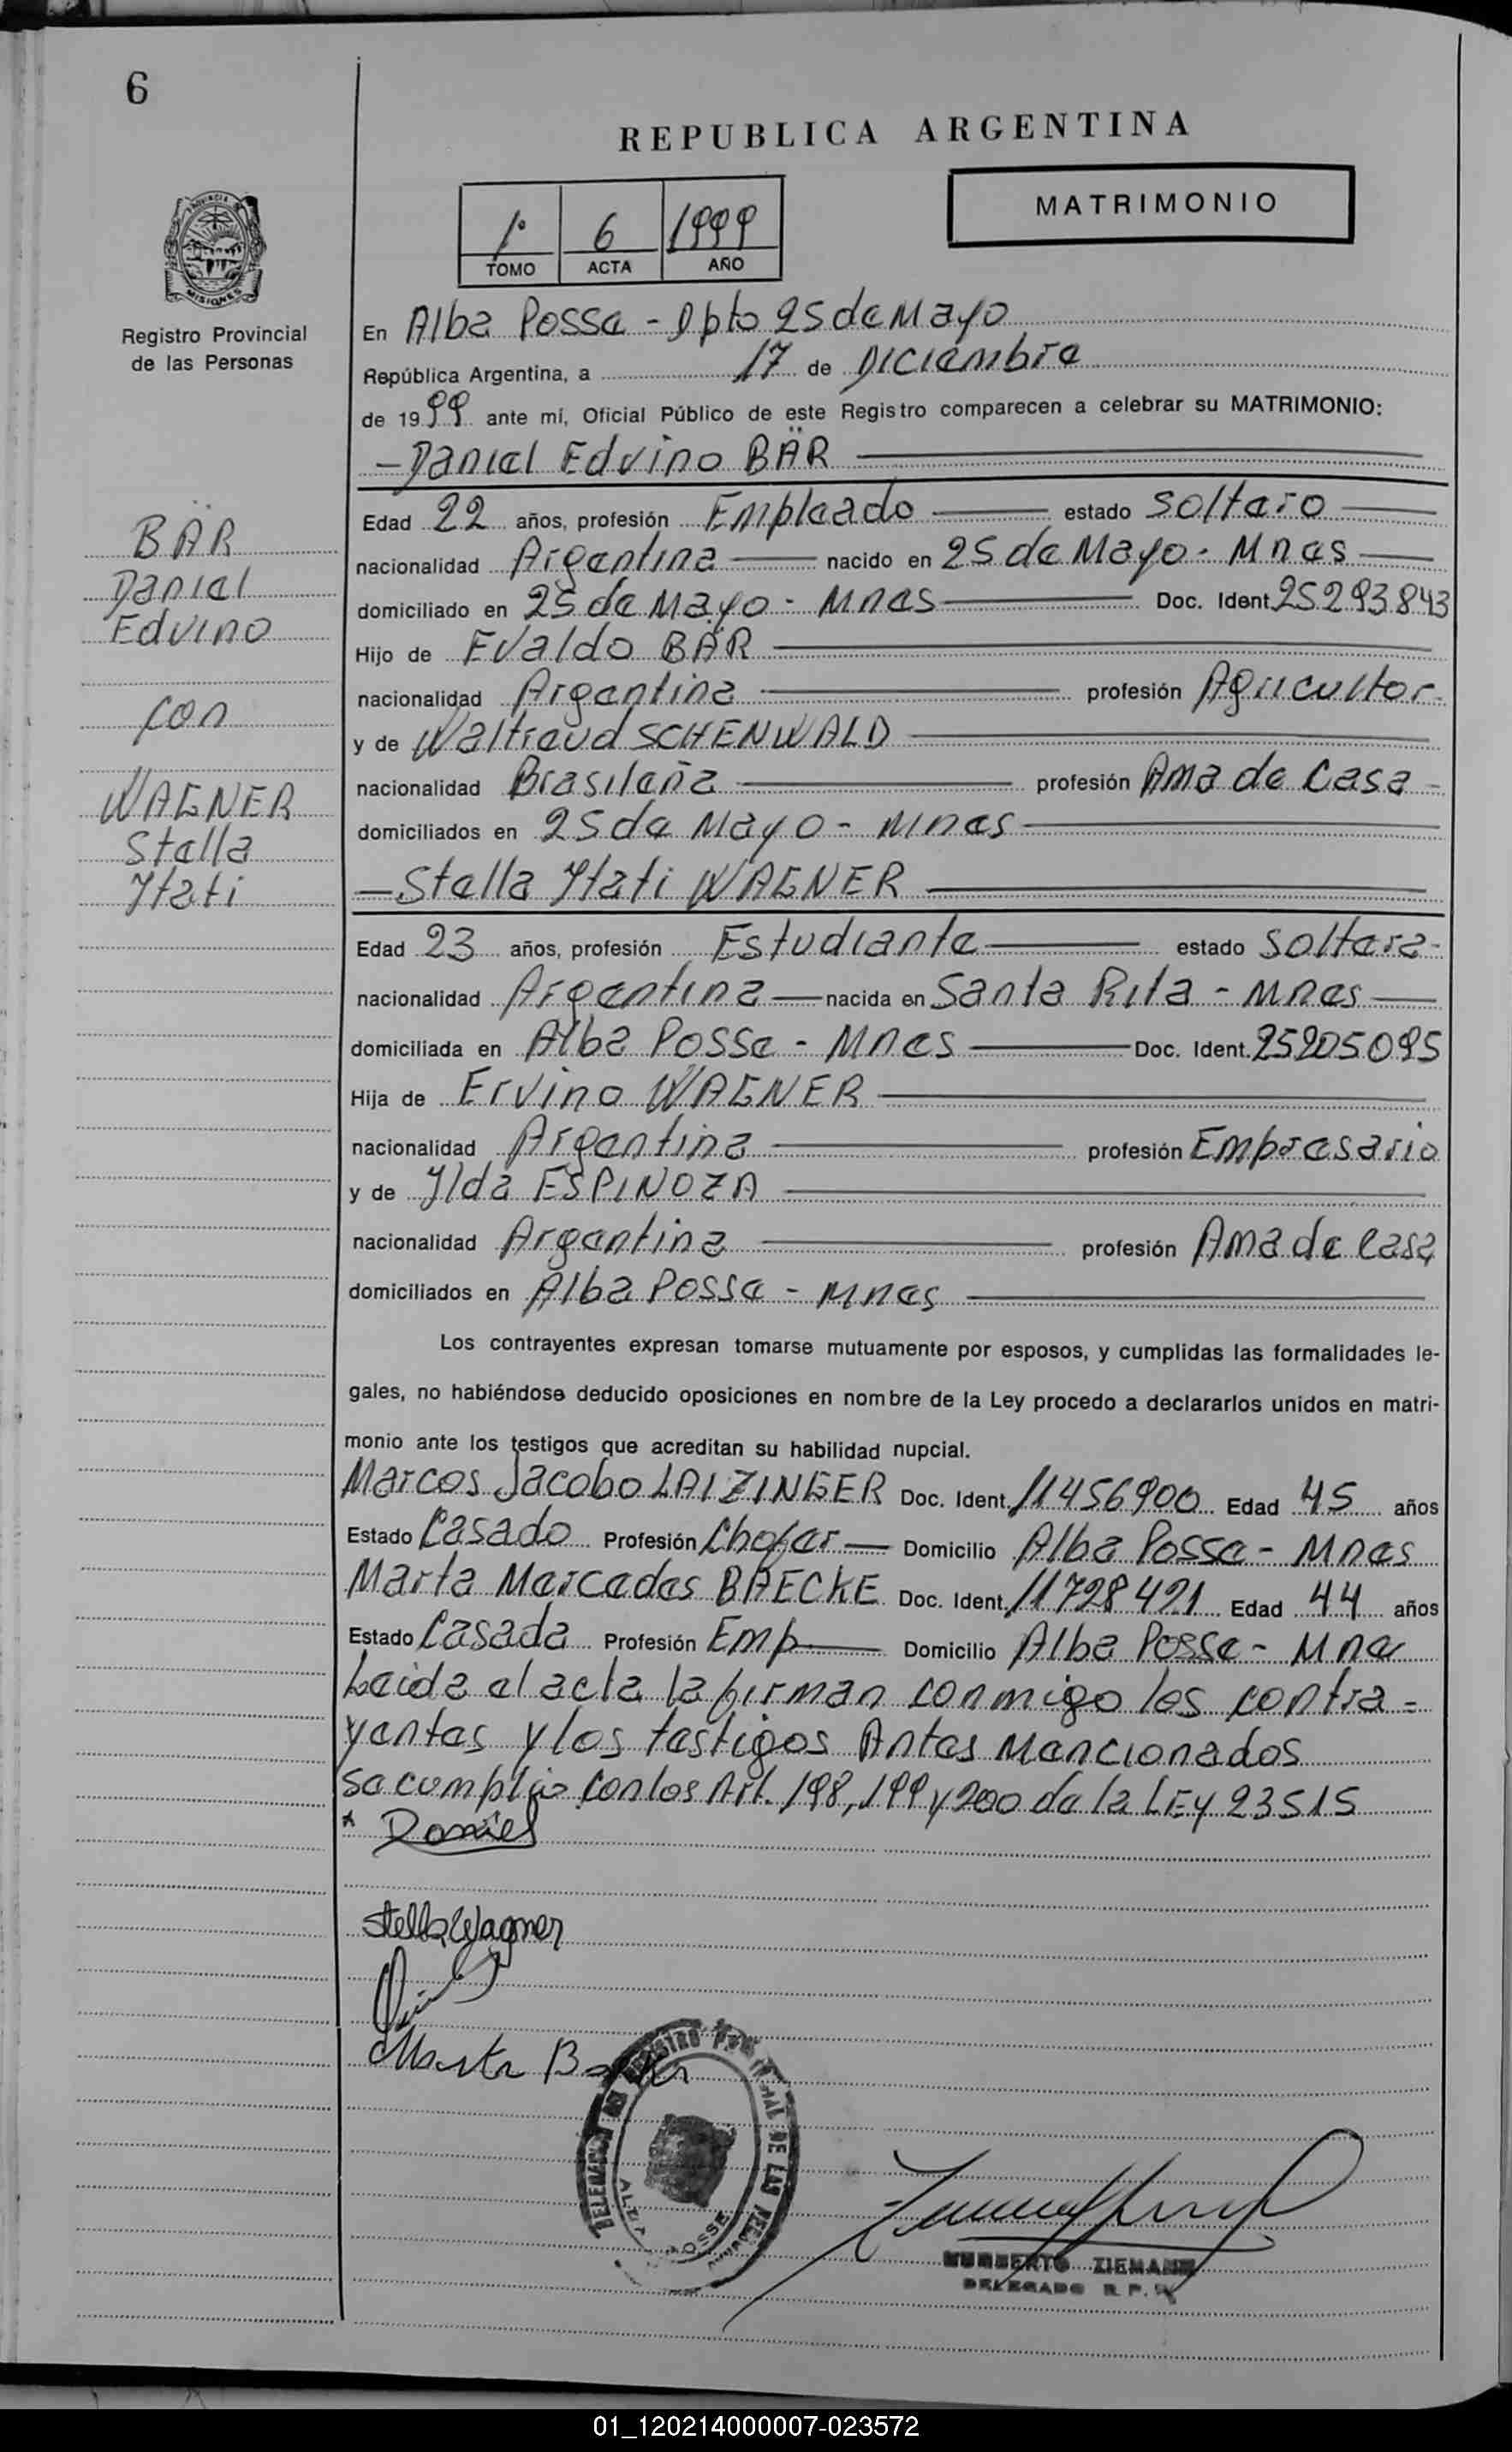 6
REPUBLICA ARGENTINA
MATRIMONIO
1º 6 1999
TOMO ACTA AÑO
PROVINCIA DE
MISIONES
Registro Provincial
de las Personas
En Alba Posse - Dpto 25 de Mayo
República Argentina, a 17 de Diciembre
de 1999 ante mí, Oficial Público de este Registro comparecen a celebrar su MATRIMONIO:
- Daniel Edvino BÄR
Edad 22 años, profesión Empleado estado soltero
nacionalidad Argentina nacido en 25 de Mayo - Mnes
domiciliado en 25 de Mayo - Mnes Doc. Ident. 25293.843
Hijo de Evaldo BÄR
nacionalidad Argentina profesión Agricultor
y de Waltraud SCHENWALD
nacionalidad Brasileña profesión Ama de Casa -
domiciliados en 25 de Mayo - Mnes
- Stella Ytati WAGNER
Edad 23 años, profesión Estudiante estado soltera -
nacionalidad Argentina nacida en Santa Rita - Mnes
domiciliada en Alba Posse - Mnes Doc. Ident. 25205095
Hija de Ervino WAGNER
nacionalidad Argentina profesión Empresario
y de Ylda ESPINOZA
nacionalidad Argentina profesión Ama de Casa
domiciliados en Alba Posse - Mnes
Los contrayentes expresan tomarse mutuamente por esposos, y cumplidas las formalidades le-
gales, no habiéndose deducido oposiciones en nombre de la Ley procedo a declararlos unidos en matri-
monio ante los testigos que acreditan su habilidad nupcial.
Marcos Jacobo LAIZINGER Doc. Ident. 11456900 Edad 45 años
Estado Casado Profesión Chofer Domicilio Alba Posse - Mnes
Marta Mercedes BAECKE Doc. Ident. 11728421 Edad 44 años
Estado Casada Profesión Emp. Domicilio Alba Posse - Mnes
Leida el acta la firman conmigo los contra=
yentes y los testigos Antes Mencionados
se cumplio con los Art. 198, 199 y 200 de la LEY 23515
BÄR
Daniel
Edvino
con
WAGNER
Stella
Ytati
* Daniel
Stella Wagner
Marta
REGISTRO PROVINCIAL DE LAS PERSONAS
ALBA POSSE
NORBERTO ZIEMANN
DELEGADO R. P.
01_120214000007-023572